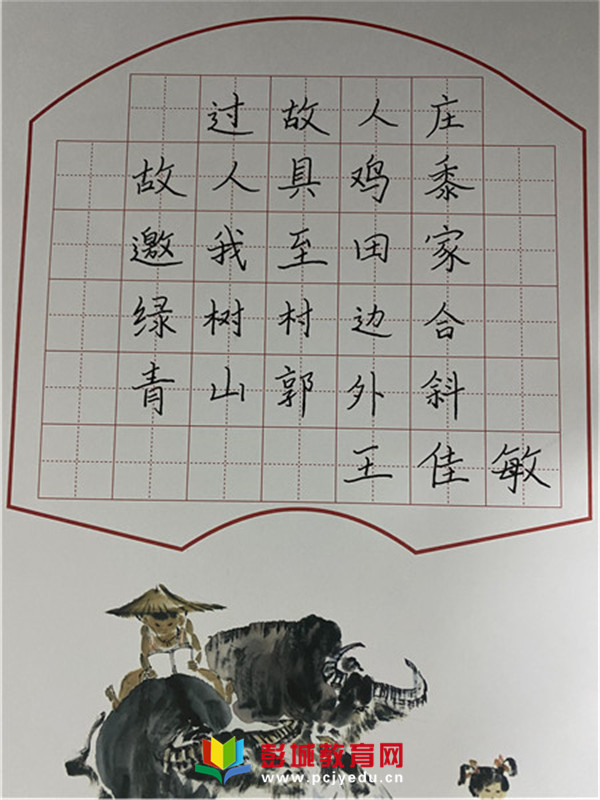 过故人庄
故人具鸡黍
邀我至田家
绿树村边合
青山郭外斜
王佳敏
彭城教育网
www.pcjyedu.cn